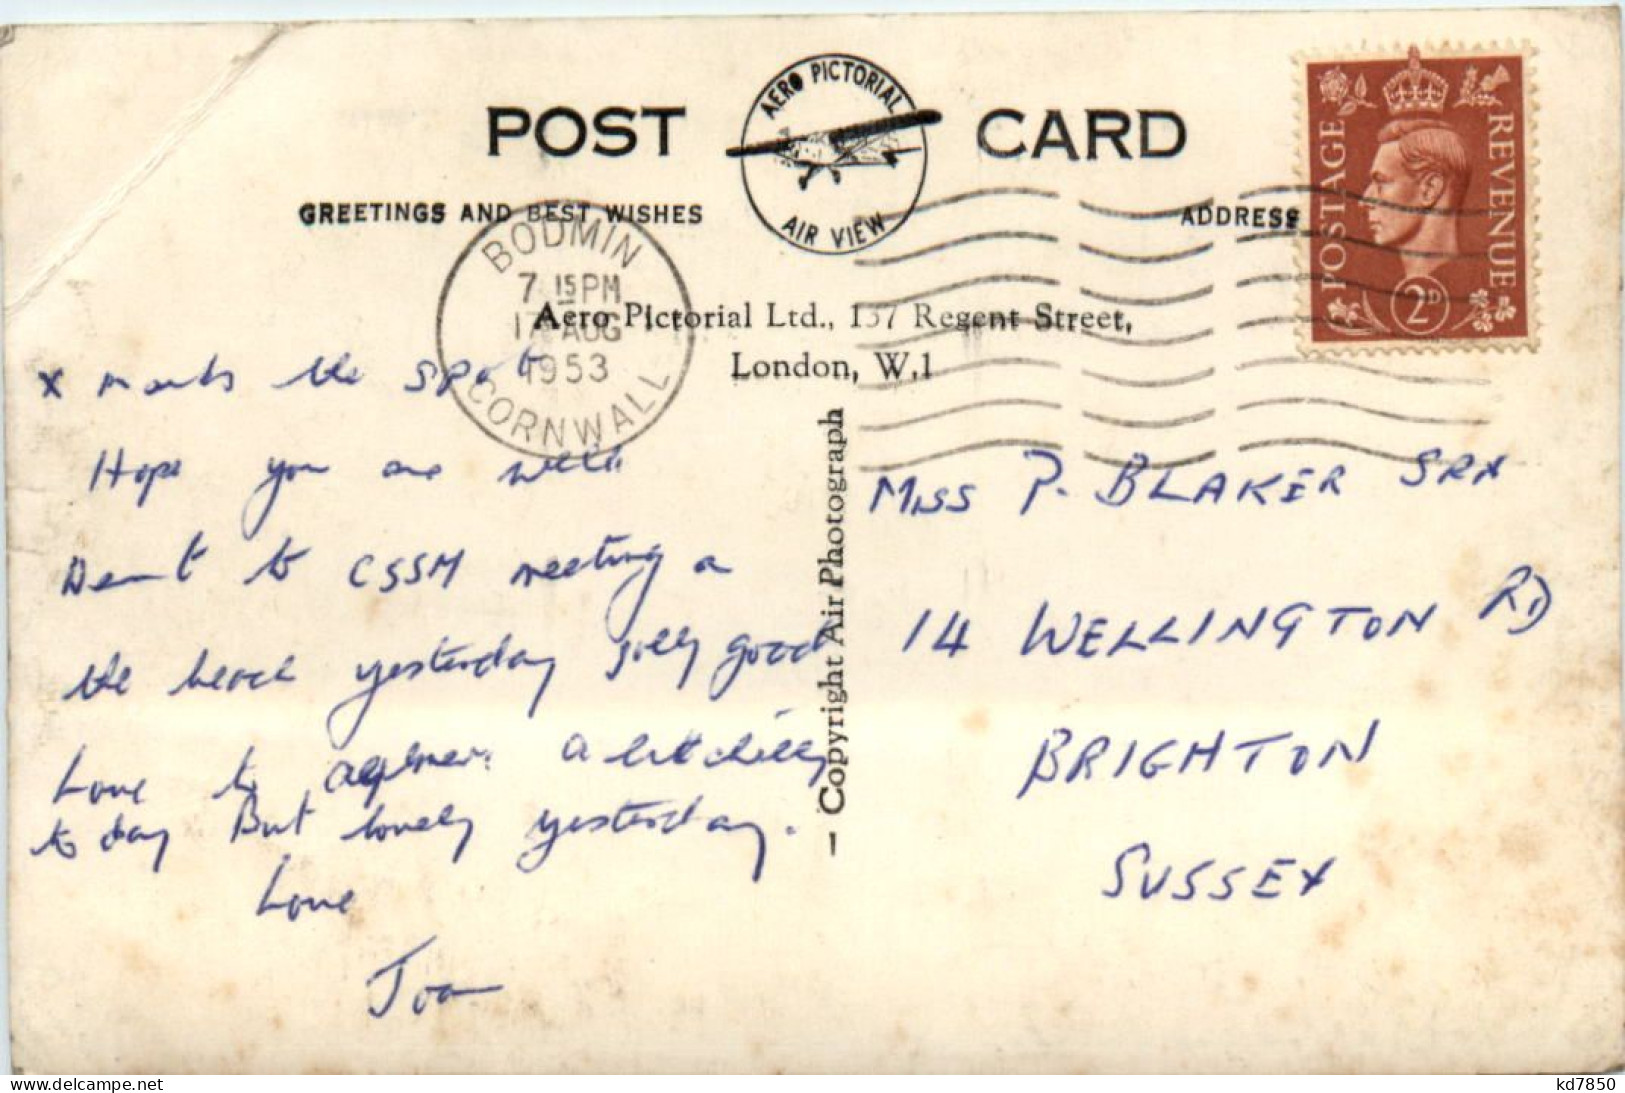 POST CARD
AERO PICTORIAL
AIR VIEW
GREETINGS AND BEST WISHES
ADDRESS
POSTAGE
REVENUE
2D
BODMIN
7 15 PM
17 AUG
1953
CORNWALL
Aero Pictorial Ltd., 137 Regent Street,
London, W.1
— Copyright Air Photograph
x marks the spot
Hope you are well
Went to CSSM meeting on
the beach yesterday jolly good
Love to A bit chilly
to day But lovely yesterday.
Love
Joan
MISS P. BLAKER SRN
14 WELLINGTON RD
BRIGHTON
SUSSEX
www.delcampe.net
kd7850